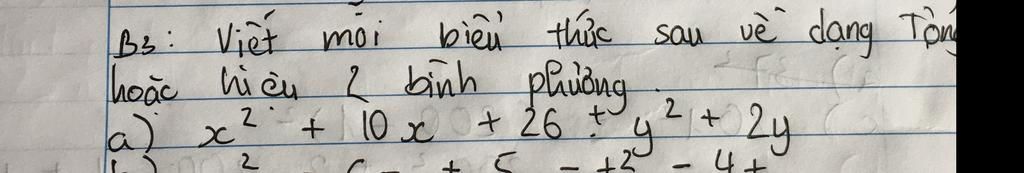 B3: Viết mỗi biểu thức sau về dạng Tổn
hoặc hiệu 2 bình phương.
a) x² + 10x + 26 + y² + 2y
² + 5 - t² - 4t